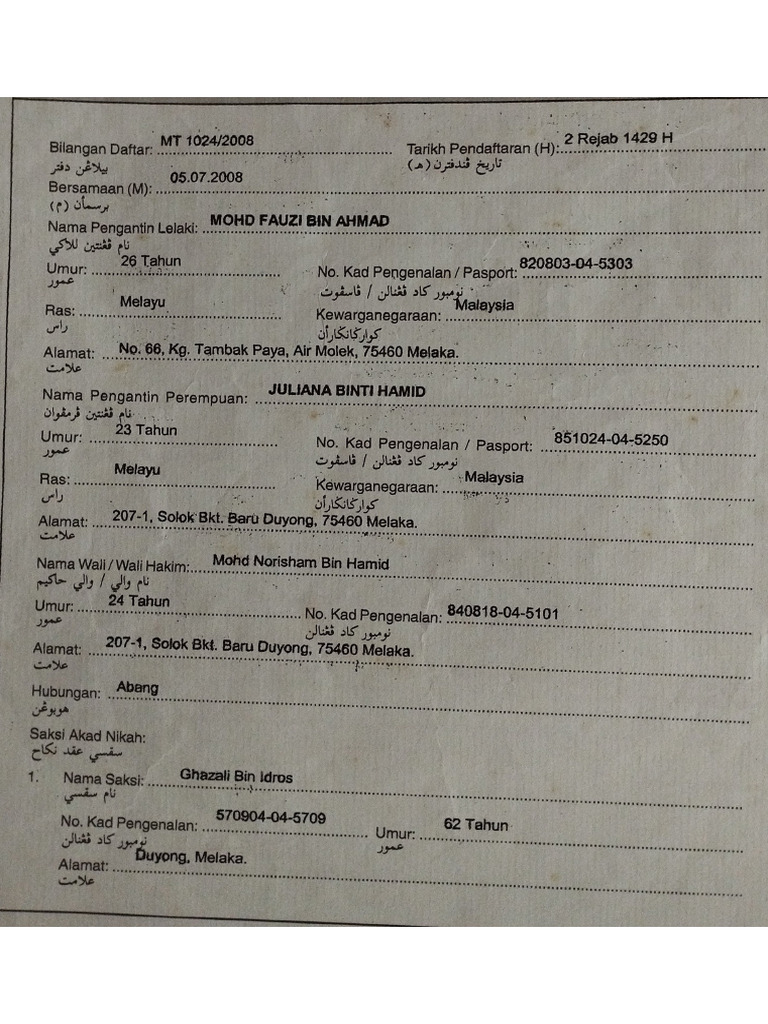 Bilangan Daftar: MT 1024/2008 Tarikh Pendaftaran (H): 2 Rejab 1429 H
بيلاڠن دفتر تاريخ ڤندفترن (هـ)
Bersamaan (M): 05.07.2008
برسمأن (م)
Nama Pengantin Lelaki: MOHD FAUZI BIN AHMAD
نام ڤڠنتين للاكي
Umur: 26 Tahun No. Kad Pengenalan / Pasport: 820803-04-5303
عمور نومبور كاد ڤڠنالن / ڤاسڤوت
Ras: Melayu Kewarganegaraan: Malaysia
راس كوارݢانݢارأن
Alamat: No. 66, Kg. Tambak Paya, Air Molek, 75460 Melaka.
علامت
Nama Pengantin Perempuan: JULIANA BINTI HAMID
نام ڤڠنتين ڤرمڤوان
Umur: 23 Tahun No. Kad Pengenalan / Pasport: 851024-04-5250
عمور نومبور كاد ڤڠنالن / ڤاسڤوت
Ras: Melayu Kewarganegaraan: Malaysia
راس كوارݢانݢارأن
Alamat: 207-1, Solok Bkt. Baru Duyong, 75460 Melaka.
علامت
Nama Wali / Wali Hakim: Mohd Norisham Bin Hamid
نام والي / والي حاكيم
Umur: 24 Tahun No. Kad Pengenalan: 840818-04-5101
عمور نومبور كاد ڤڠنالن
Alamat: 207-1, Solok Bkt. Baru Duyong, 75460 Melaka.
علامت
Hubungan: Abang
هوبوڠن
Saksi Akad Nikah:
سقسي عقد نكاح
1. Nama Saksi: Ghazali Bin Idros
نام سقسي
No. Kad Pengenalan: 570904-04-5709 Umur: 62 Tahun
نومبور كاد ڤڠنالن عمور
Alamat: Duyong, Melaka.
علامت